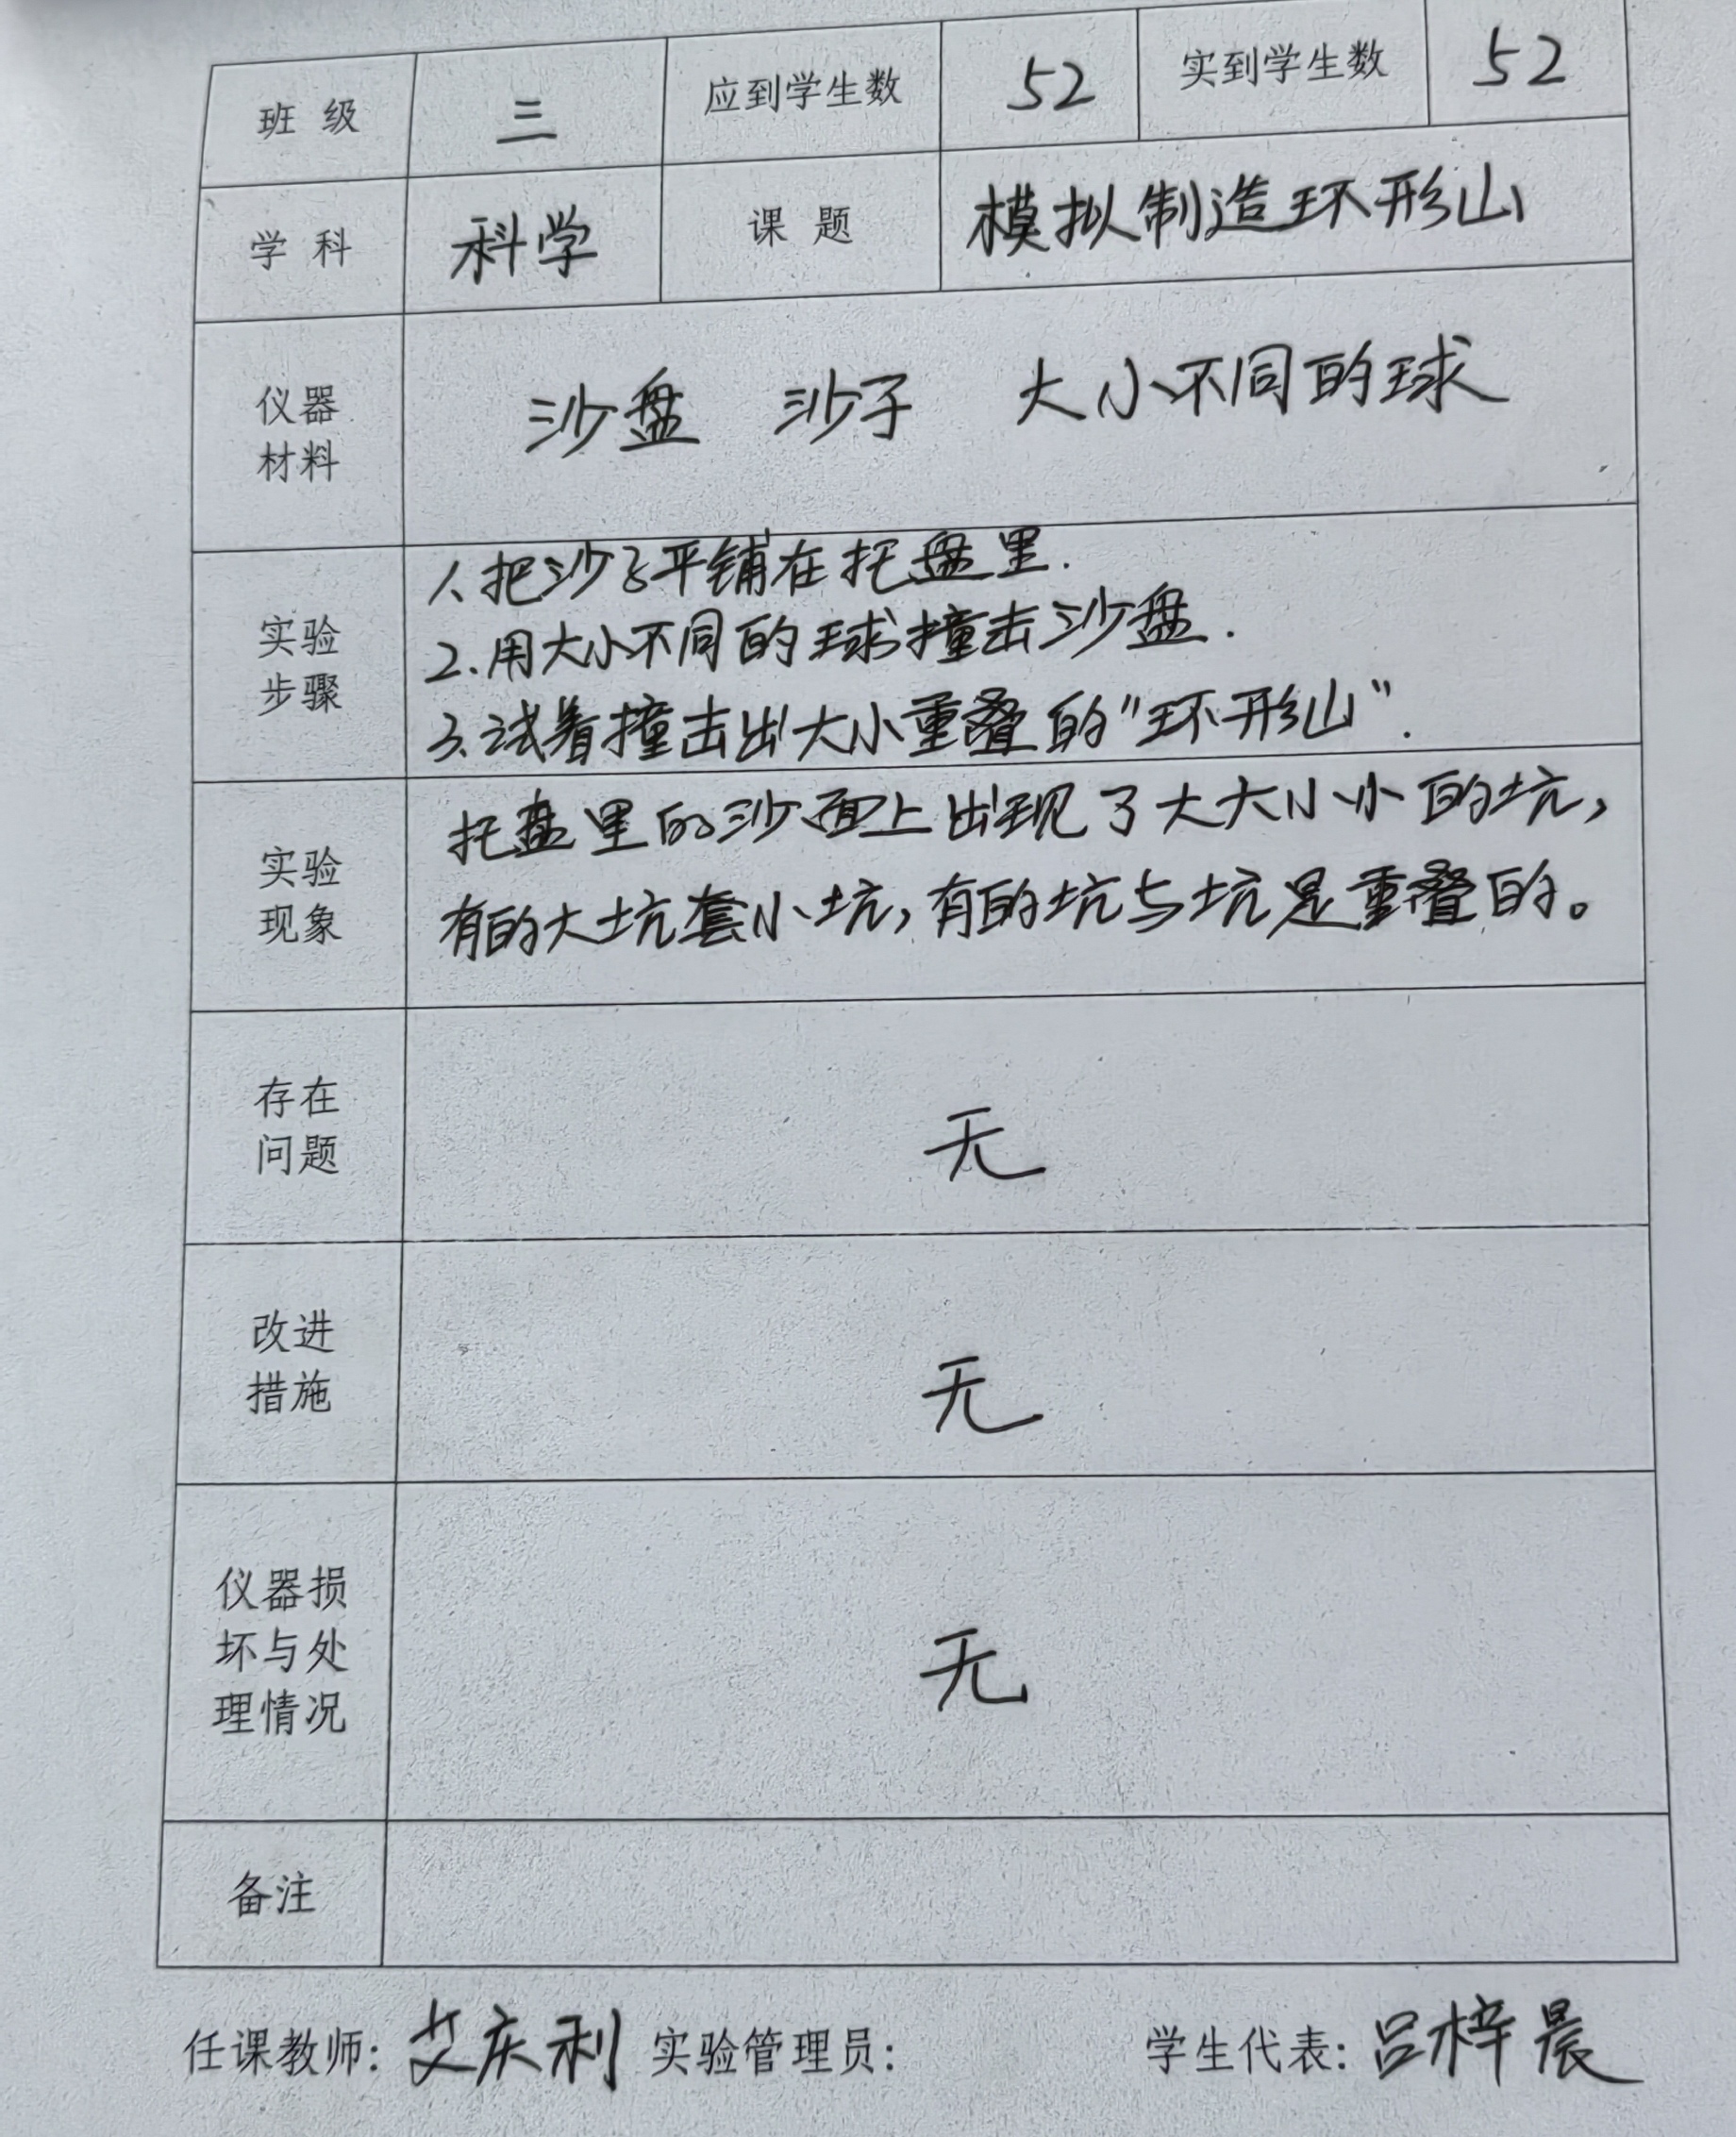 班 级 三 应到学生数 52 实到学生数 52
学 科 科学 课 题 模拟制造环形山
仪器
材料
沙盘 沙子 大小不同的球
实验
步骤
1、把沙子平铺在托盘里.
2.用大小不同的球撞击沙盘.
3、试着撞击出大小重叠的“环形山”.
实验
现象
托盘里的沙面上出现了大大小小的坑,
有的大坑套小坑,有的坑与坑是重叠的。
存在
问题
无
改进
措施
无
仪器损
坏与处
理情况
无
备注
任课教师: 艾庆利 实验管理员: 学生代表: 吕梓晨